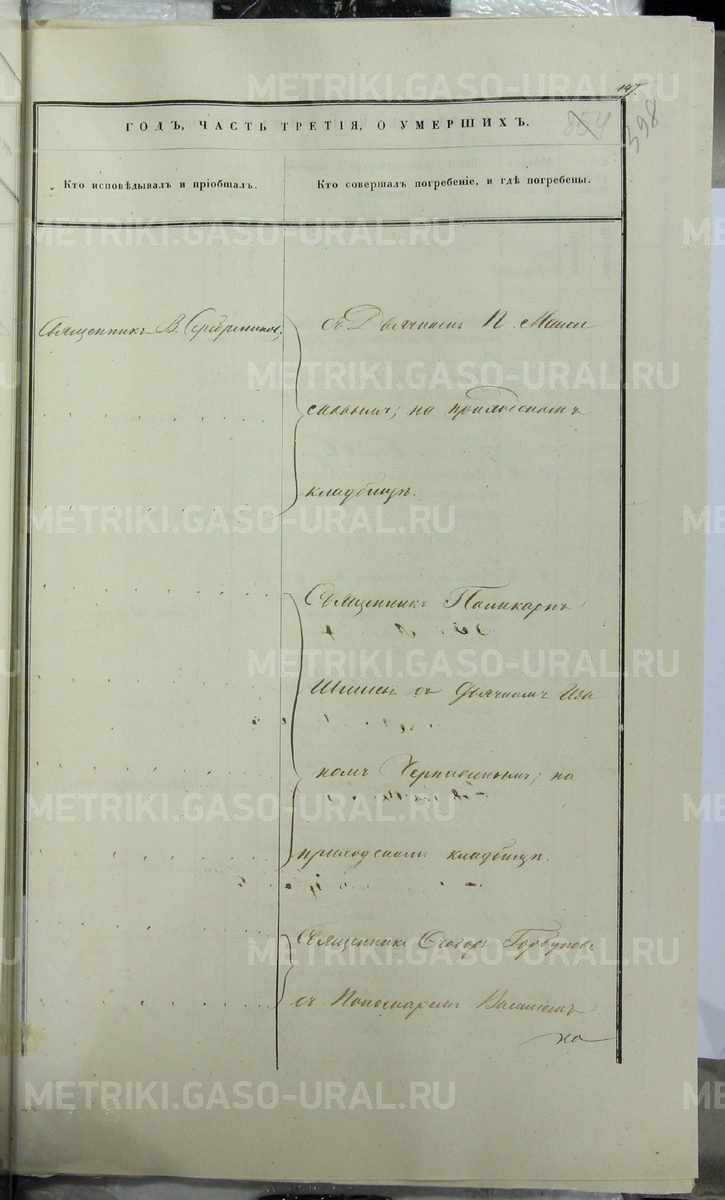 METRIKI.GASO-URAL.RU
147.
854
398
ГОДЪ, ЧАСТЬ ТРЕТІЯ, О УМЕРШИХЪ.
Кто исповѣдывалъ и пріобщалъ.
Кто совершалъ погребеніе, и гдѣ погребены.
Священникъ В. Серебренниковъ;
съ Дьячкомъ П.
на приходскомъ
кладбищѣ.
Священникъ Поликарпъ
съ Дьячкомъ Ива
номъ на
приходскомъ кладбищѣ.
Священникъ Ѳеодоръ Горбуновъ
съ Пономаремъ Василіемъ
на